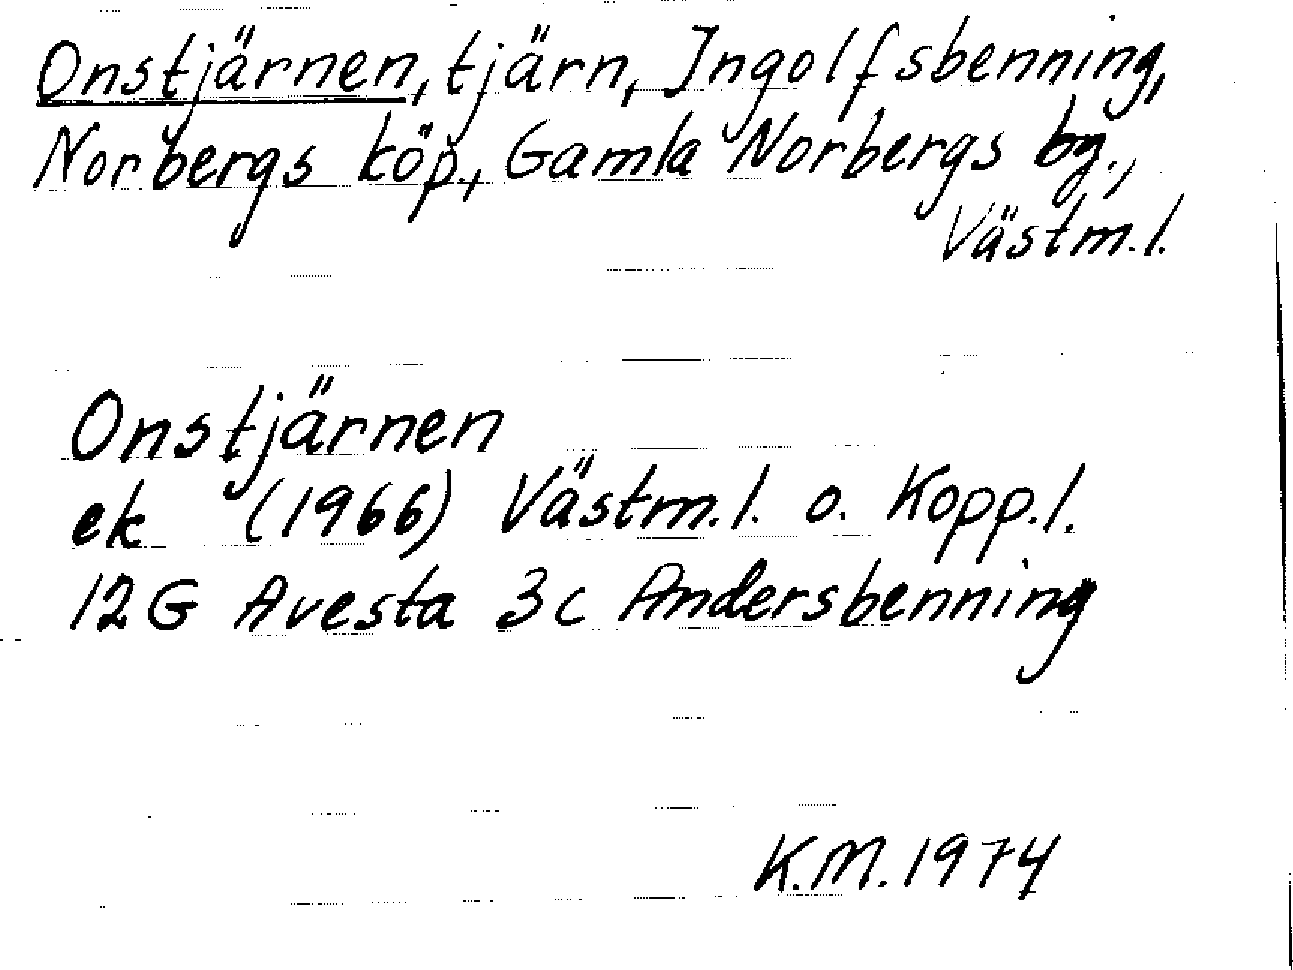 Onstjärnen, tjärn, Ingolfsbenning,
Norbergs köp., Gamla Norbergs bg.,
Västm.l.
Onstjärnen
ek (1966) Västm.l. o. Kopp.l.
12G Avesta 3c Andersbenning
K.M. 1974